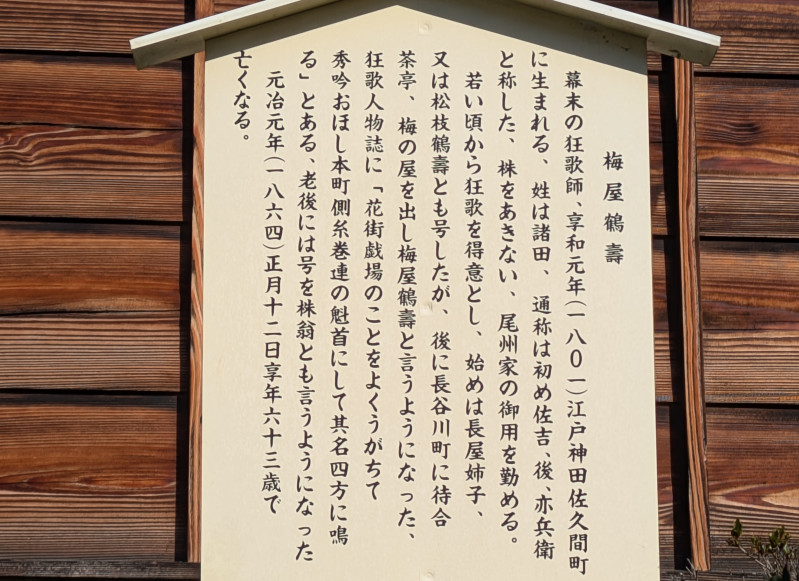 梅屋鶴壽
幕末の狂歌師、享和元年(一八〇一)江戸神田佐久間町
に生まれる、姓は諸田、通称は初め佐吉、後、亦兵衛
と称した、株をあきない、尾州家の御用を勤める。
若い頃から狂歌を得意とし、始めは長屋姉子、
又は松枝鶴壽とも号したが、後に長谷川町に待合
茶亭、梅の屋を出し梅屋鶴壽と言うようになった、
狂歌人物誌に「花街戯場のことをよくうがちて
秀吟おほし本町側糸巻連の魁首にして其名四方に鳴
る」とある、老後には号を株翁とも言うようになった
元治元年(一八六四)正月十二日享年六十三歳で
亡くなる。